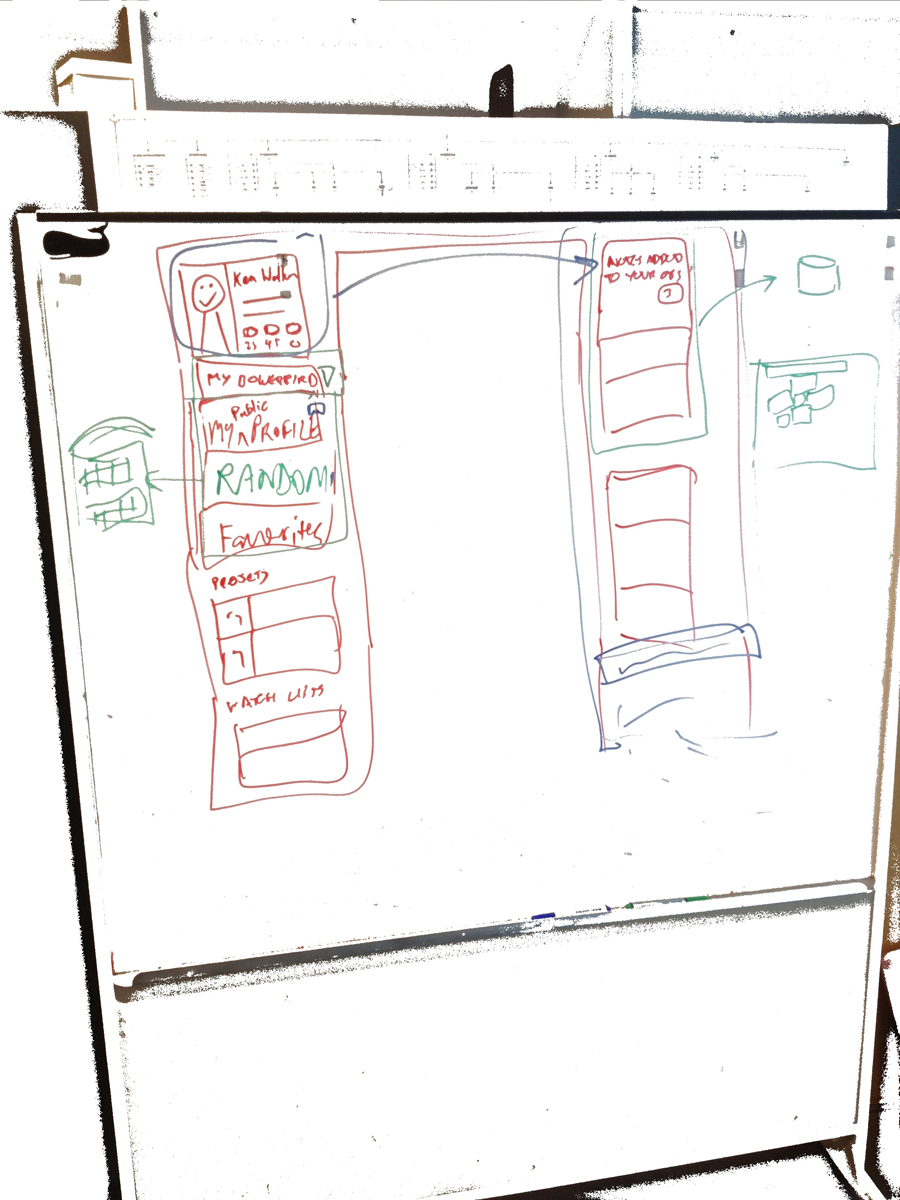 Ken Walker
23 45 0
MY BOWERBIRD
Public
MY PROFILE
RANDOM
Favorites
PROJECTS
WATCH LISTS
ADDED
TO YOUR
3